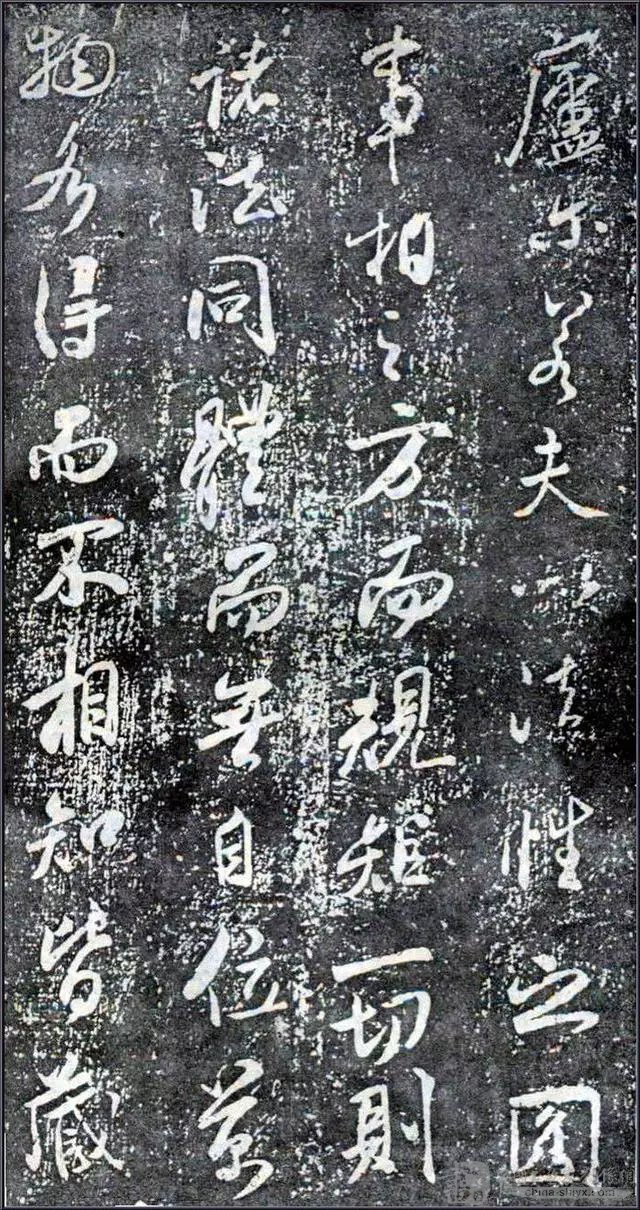 廬尔若夫以法性之圓
事相之方而規矩一切則
諸法同體而無自位萬
物各得而不相知皆藏